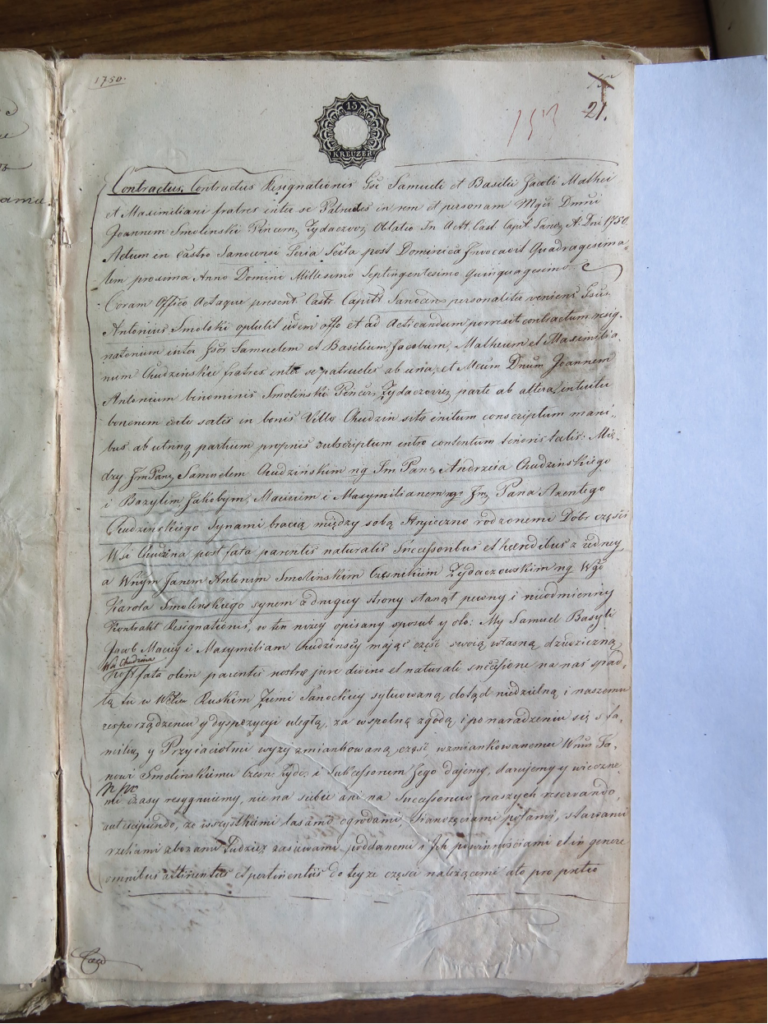 1750.
21.
15
KREUZER
153
Contractus. Contractus Resignationis Gsi Samueli et Basilii Jacobi Mathei
et Maximiliani fratres inter se Patrueles in rem et personam Mgci Dmni
Joannem Smolinski Pincern, Zydaczov, Oblatio In Act. Cast. Capit. Sanoc. A. Dni 1750.
Actum in Castro Sanocensi Feria Sexta post Dominicam Invocavit Quadragesima-
lem proxima Anno Domini Millesimo Septingentesimo Quinquagesimo.
Coram Officio Actisque present. Castr. Capit. Sanocin. personaliter veniens Gsus
Antonius Smolski optulit eidem offo et ad Acticandum porrexit contractum resig-
natorium inter Gsos Samuelem et Basilium Jacobum, Matheum et Maximilia-
num Chudzinskie fratres inter se patrueles ab una, et Mcum Dnum Joannem
Antonium binominis Smolinski Pincer, Zydaczovien, parte ab altera, intuitu
bonorum certo sortis in bonis Villa Chudzin sitis initum conscriptum mani-
bus ab utrinq partium propriis subscriptum, entio contentum tenoris talis: Mię-
dzy Jm Pany Samuelem Chudzińskim ng. Jm Pana Andrzeia Chudzinskiego
i Bazylim Jakóbym, Maciejem i Maxymilianem ngo Jm Pana Axentego
Chudzinskiego Synami bracią między sobą Stryieczno rodzonemi Dobr części
Wsi Chudzina post fata parentis naturalis Successoribus et hæredibus z iedney,
a Wnym Janem Antonim Smolińskim Cześnikiem Zydaczowskim ng. Wgo
Karola Smolinskiego synem z drugiey strony stanął pewny i nieodmienny
Kontrakt Resignationis, w ten niżey opisany sposob y oto: My Samuel Bazyli
Jacob Maciey i Maxymiliam Chudzinscy mając część swoią własną dziedziczną
Wsi Chudzina
Post fata olim parentis nostri jure divino et naturali successione na nas spad-
łą tu w Wztwie Ruskim Ziemi Sanockiey sytuowaną, dotąd niedzielną i naszemu
rozporządzeniu y dyspozycyi uległą, za wspolną zgodą i po naradzeniu się z fa-
milią y Przyiaciołmi wyzy zmiankowaną część wzmiankowanemu Wmu Ja-
nowi Smolinskiemu Czesn. Żyd. i Sukcessorom Jego dajemy, darujemy y wieczne-
mi czasy resygnujemy, nic na siebie ani na Sukcessorow naszych reservando,
aut excipiendo, ze wszystkimi lasami ogrodami, sianożęciami polami, stawami
rzekami zbożami Tudzież zasiewami, poddanemi i Ich powinnościami et in genere
omnibus attinentiis et pertinentiis do teyże części należącemi ale pro pretio